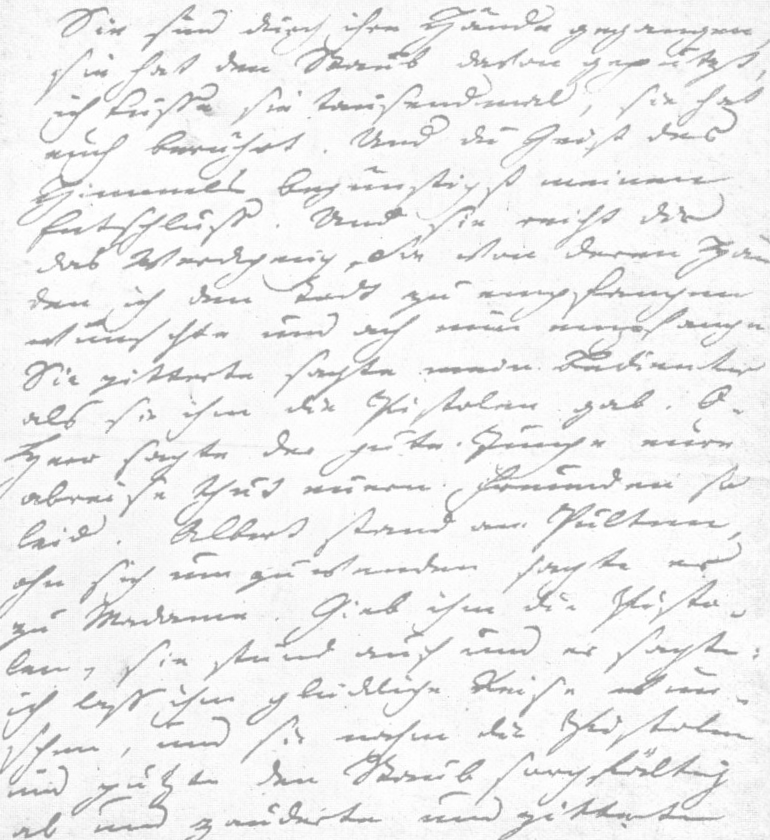 Sie sind durch ihre Hände gegangen,
sie hat den Staub davon geputzt,
ich küsse sie tausendmal, sie hat
euch berührt. Und du Geist des
Himmels begünstigst meinen
Entschluss. Und sie reicht dir
das Werckzeug, Sie von deren Hän
den ich den Todt zu empfangen
wünschte und ach nun empfange
Sie zitterte sagte mein Bedienter
als sie ihm die Pistolen gab. O
Herr sagte der gute Junge eure
abreise thut euern Freunden so
leid. Albert stand am Pulten,
ohn sich um zu wenden sagte er
zu Madame. Gieb ihm die Pisto-
len, sie stund auf und er sagte:
ich lass ihm glückliche Reise wün-
schen, und sie nahm die Pistolen
und putzte den Staub sorgfältig
ab und zauderte und zitterte